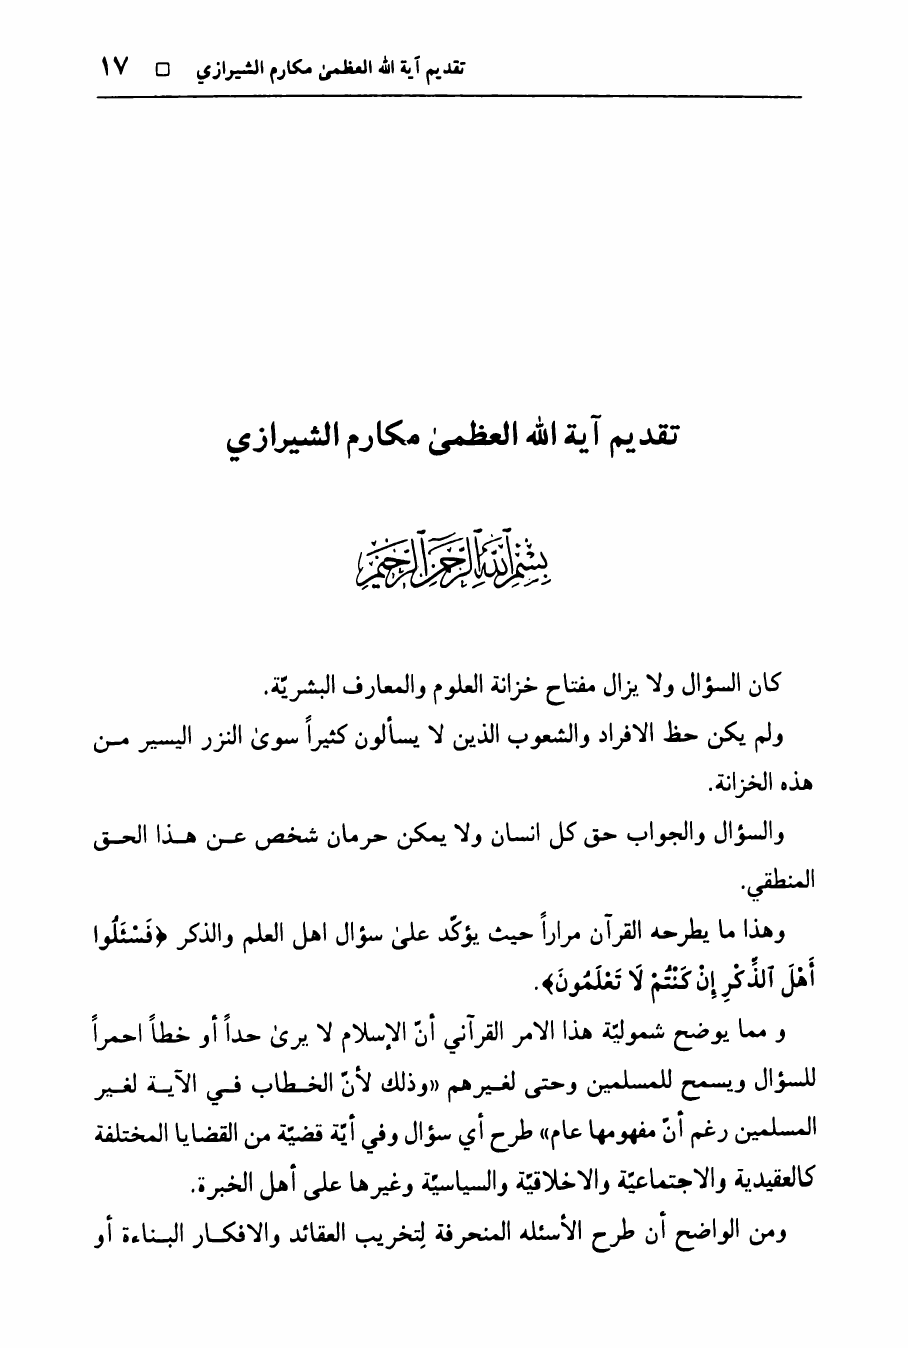 تقديم آية الله العظمىٰ مكارم الشيرازي □ ١٧
تقديم آية الله العظمىٰ مكارم الشيرازي
بِسْمِ ٱللَّهِ ٱلرَّحْمَٰنِ ٱلرَّحِيمِ
كان السؤال ولا يزال مفتاح خزانة العلوم والمعارف البشريّة.
ولم يكن حظ الافراد والشعوب الذين لا يسألون كثيراً سوىٰ النزر اليسير مـن
هذه الخزانة.
والسؤال والجواب حق كل انسان ولا يمكن حرمان شخص عـن هـذا الحـق
المنطقي.
وهذا ما يطرحه القرآن مراراً حيث يؤكّد علىٰ سؤال اهل العلم والذكر ﴿فَسْئَلُوا
أَهْلَ ٱلذِّكْرِ إِنْ كُنْتُمْ لَا تَعْلَمُونَ﴾.
و مما يوضح شموليّة هذا الامر القرآني أنّ الإسلام لا يرىٰ حداً أو خطاً احمراً
للسؤال ويسمح للمسلمين وحتى لغيرهم «وذلك لأنّ الخـطاب فـي الآيـة لغـير
المسلمين رغم أنّ مفهومها عام» طرح أي سؤال وفي أيّة قضيّة من القضايا المختلفة
كالعقيدية والاجتماعيّة والاخلاقيّة والسياسيّة وغيرها على أهل الخبرة.
ومن الواضح أن طرح الأسئله المنحرفة لِتخريب العقائد والافكـار البـناءة أو